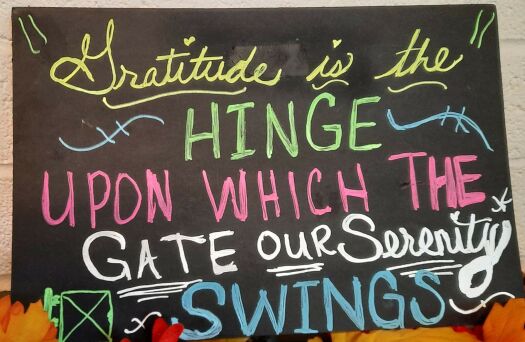 "Gratitude is the"
HINGE
UPON WHICH THE
GATE OUR Serenity
SWINGS